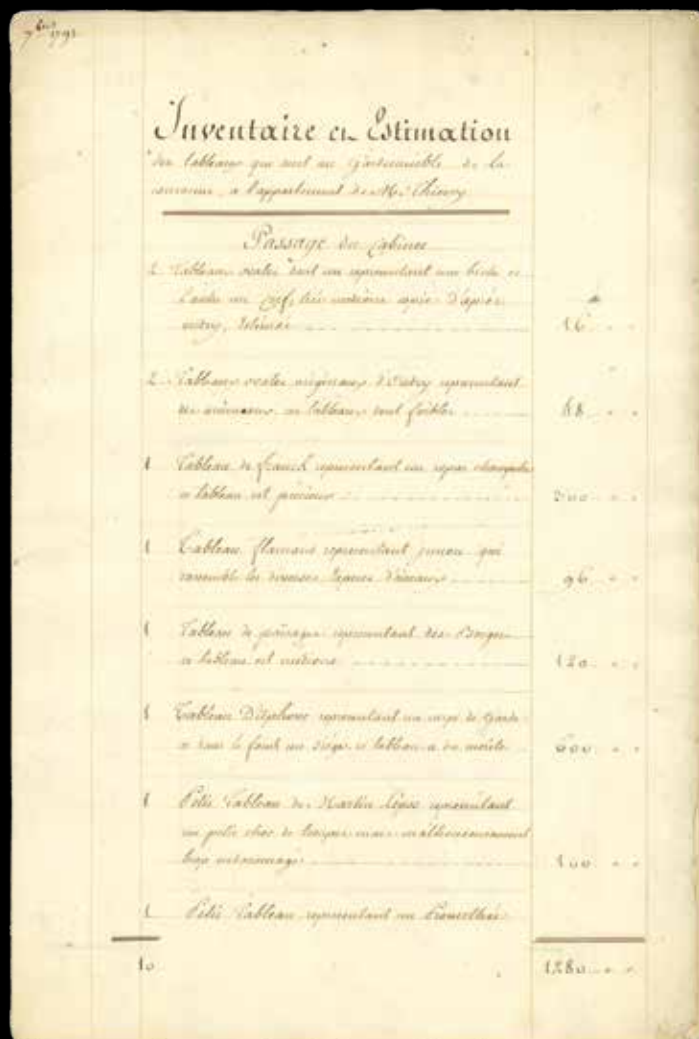 7bre 1793
Inventaire et Estimation
des tableaux qui sont au Gardemeuble de la
couronne, a l'appartement de Mr. Thierry
Passage du Cabinet
2 Tableaux ovales dont un representant une biche et
l'autre un cerf, très mediocre copie d'après
oudry, Estimés 16
2 Tableaux ovales originaux d'Oudry representant
des animaux, ces tableaux sont foibles 48
1 Tableau de franck representant un repas champetre
ce tableau est précieux 300
1 Tableau flamand representant junon qui
rassemble les diverses Especes d'oiseaux 96
1 Tableau de païsage representant des Berger
ce tableau est mediocre 120
1 Tableau representant un corps de Garde
et dans le fond un siége ce tableau a du merite 600
1 Petit Tableau de Martin representant
un petit choc de troupes mais malheureusement
trop endommagé 100
1 Petit Tableau representant un Promethée
10 1280